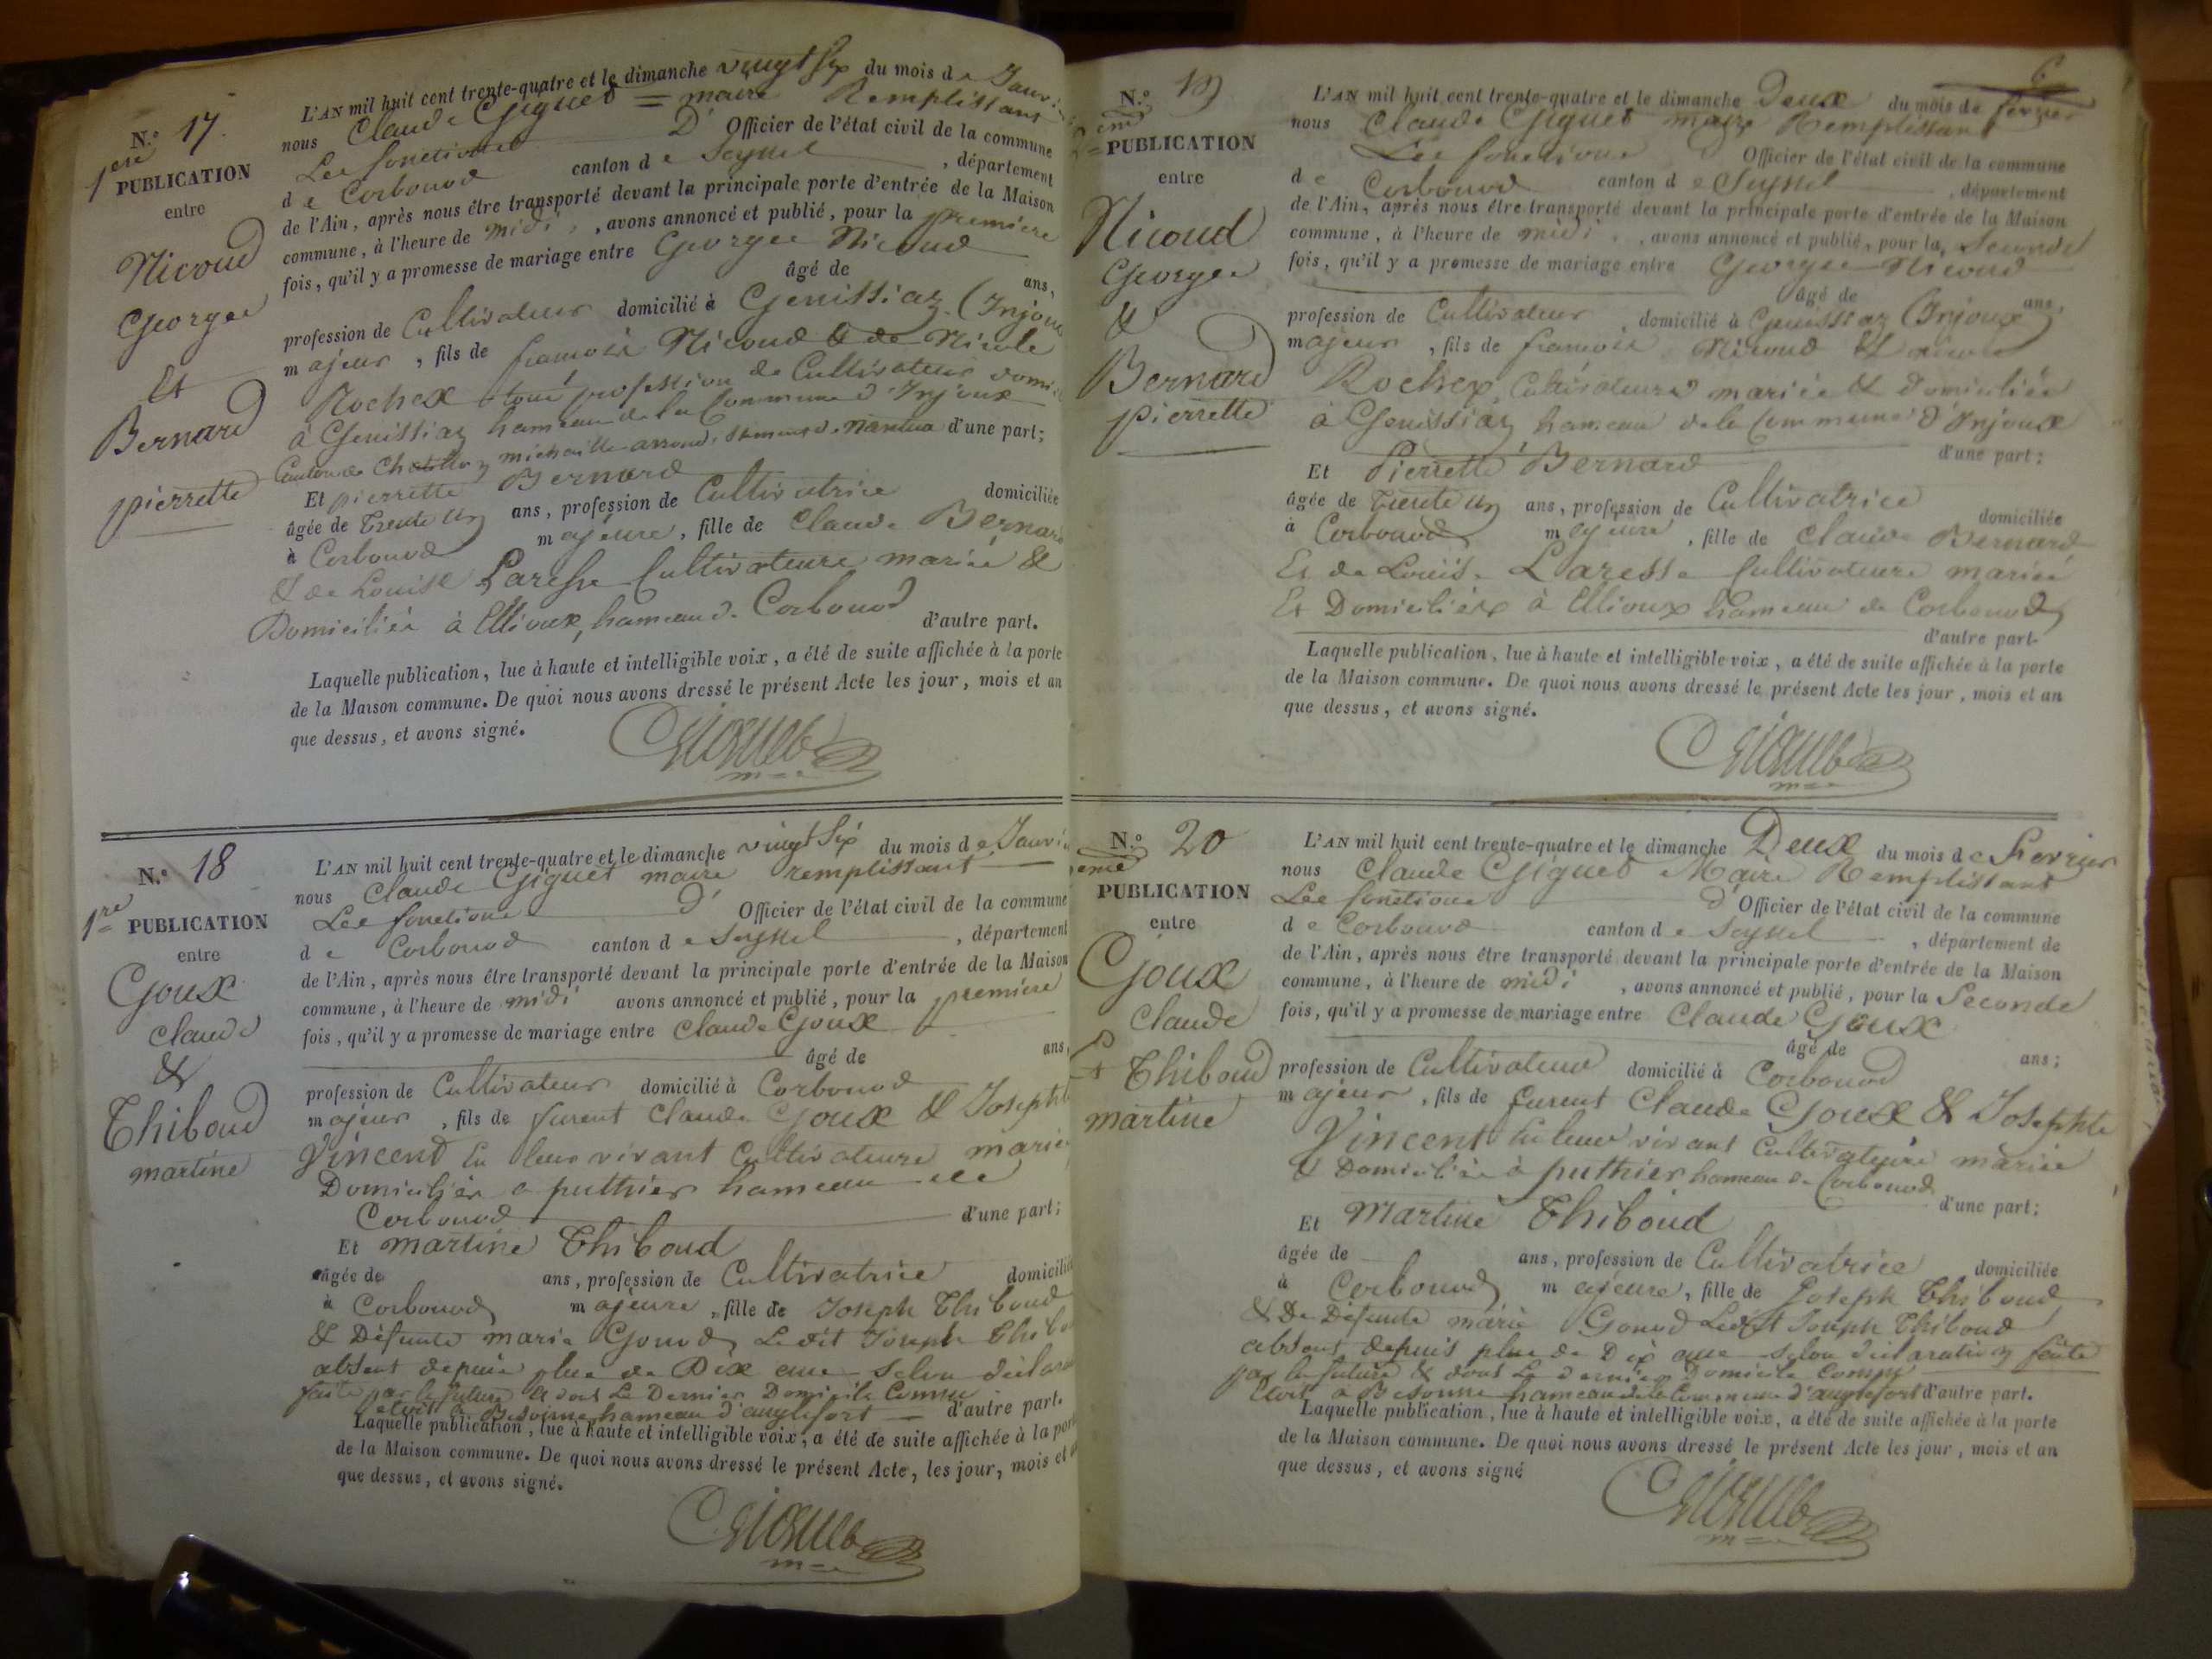 N.° 17.
1ere
PUBLICATION
entre
Nicoud
George
Et
Bernard
pierrette
L'AN mil huit cent trente-quatre et le dimanche vingt six du mois de Janvi
nous Claude Giguet = maire Remplissant
Les fonctions D' Officier de l'état civil de la commune
de Corbonod canton de Seyssel , département
de l'Ain, après nous être transporté devant la principale porte d'entrée de la Maison
commune, à l'heure de midi , avons annoncé et publié, pour la premiere
fois, qu'il y a promesse de mariage entre George Nicoud
âgé de ans,
profession de Cultivateur domicilié à Genissiaz (Injoux
majeur , fils de francois Nicoud & de Nicole
Rochex tous profession de Cultivateur domi
à Genissiaz hameau de la Commune d'Injoux
Canton de Chatillon michaille arrondissement de nantua d'une part;
Et pierrette Bernard
âgée de Trente un ans, profession de Cultivatrice domiciliée
à Corbonod majeure, fille de Claude Bernard
& de Louise Laresse Cultivateurs mariés &
Domiciliés à Ellioux, hameau de Corbonod d'autre part.
Laquelle publication, lue à haute et intelligible voix, a été de suite affichée à la porte
de la Maison commune. De quoi nous avons dressé le présent Acte les jour, mois et an
que dessus, et avons signé.
Giguet
N.° 18
1re PUBLICATION
entre
Goux
Claude
&
Thiboud
martine
L'AN mil huit cent trente-quatre et le dimanche vingt six du mois de Janvi
nous Claude Giguet maire remplissant
Les fonctions D' Officier de l'état civil de la commune
de Corbonod canton de Seyssel , département
de l'Ain, après nous être transporté devant la principale porte d'entrée de la Maison
commune, à l'heure de midi avons annoncé et publié, pour la premiere
fois, qu'il y a promesse de mariage entre Claude Goux
âgé de ans,
profession de Cultivateur domicilié à Corbonod
majeur , fils de furent Claude Goux & Josephte
Vincent En leur vivant Cultivateurs mariés
Domiciliés a puthier hameau de
Corbonod d'une part;
Et martine Thiboud
âgée de ans, profession de Cultivatrice domiciliée
à Corbonod majeure, fille de Joseph Thiboud
& Défunte marie Gonod Le dit Joseph Thibo
absent depuis plus de Dix ans selon déclara
faite par la future & dont Le Dernier Domicile Connu
etoit a Besonne hameau d'anglefort d'autre part.
Laquelle publication, lue à haute et intelligible voix, a été de suite affichée à la porte
de la Maison commune. De quoi nous avons dressé le présent Acte, les jour, mois et a
que dessus, et avons signé.
Giguet
6
N.° 19
2eme
PUBLICATION
entre
Nicoud
George
&
Bernard
pierrette
L'AN mil huit cent trente-quatre et le dimanche Deux du mois de fevrier
nous Claude Giguet maire Remplissant
Les fonctions D' Officier de l'état civil de la commune
de Corbonod canton de Seyssel , département
de l'Ain, après nous être transporté devant la principale porte d'entrée de la Maison
commune, à l'heure de midi , avons annoncé et publié, pour la Seconde
fois, qu'il y a promesse de mariage entre George Nicoud
âgé de ans,
profession de Cultivateur , domicilié à Genissiaz (Injoux)
majeur , fils de francois Nicoud & nicole
Rochex, Cultivateurs mariés & domiciliés
à Genissiaz hameau de la Commune d'Injoux
d'une part;
Et Pierrette Bernard
âgée de trente un ans, profession de Cultivatrice domiciliée
à Corbonod majeure , fille de Claude Bernard
Et de Louise Laresse Cultivateurs mariés
Et Domiciliés à Ellioux hameau de Corbonod
d'autre part.
Laquelle publication, lue à haute et intelligible voix, a été de suite affichée à la porte
de la Maison commune. De quoi nous avons dressé le présent Acte les jour, mois et an
que dessus, et avons signé.
Giguet
N.° 20
eme
PUBLICATION
entre
Goux
Claude
Et
Thiboud
martine
L'AN mil huit cent trente-quatre et le dimanche Deux du mois de Fevrier
nous Claude Giguet Maire Remplissant
Les fonctions D' Officier de l'état civil de la commune
de Corbonod canton de Seyssel , département de
de l'Ain, après nous être transporté devant la principale porte d'entrée de la Maison
commune, à l'heure de midi , avons annoncé et publié, pour la Seconde
fois, qu'il y a promesse de mariage entre Claude Goux
âgé de ans;
profession de Cultivateur domicilié à Corbonod
majeur , fils de furent Claude Goux & Josephte
Vincent En leur vivant Cultivateurs mariés
& Domiciliés à puthier hameau de Corbonod d'une part;
Et Martine Thiboud
âgée de ans, profession de Cultivatrice domiciliée
à Corbonod majeure, fille de Joseph Thiboud
& De Défunte marie Gonod Ledit Joseph Thiboud
absent depuis plus de Dix ans selon déclaration faite
par la future & dont Le dernier Domicile Connu
Etoit a Besonne hameau de la Commune d'anglefort d'autre part.
Laquelle publication, lue à haute et intelligible voix, a été de suite affichée à la porte
de la Maison commune. De quoi nous avons dressé le présent Acte les jour, mois et an
que dessus, et avons signé
Giguet